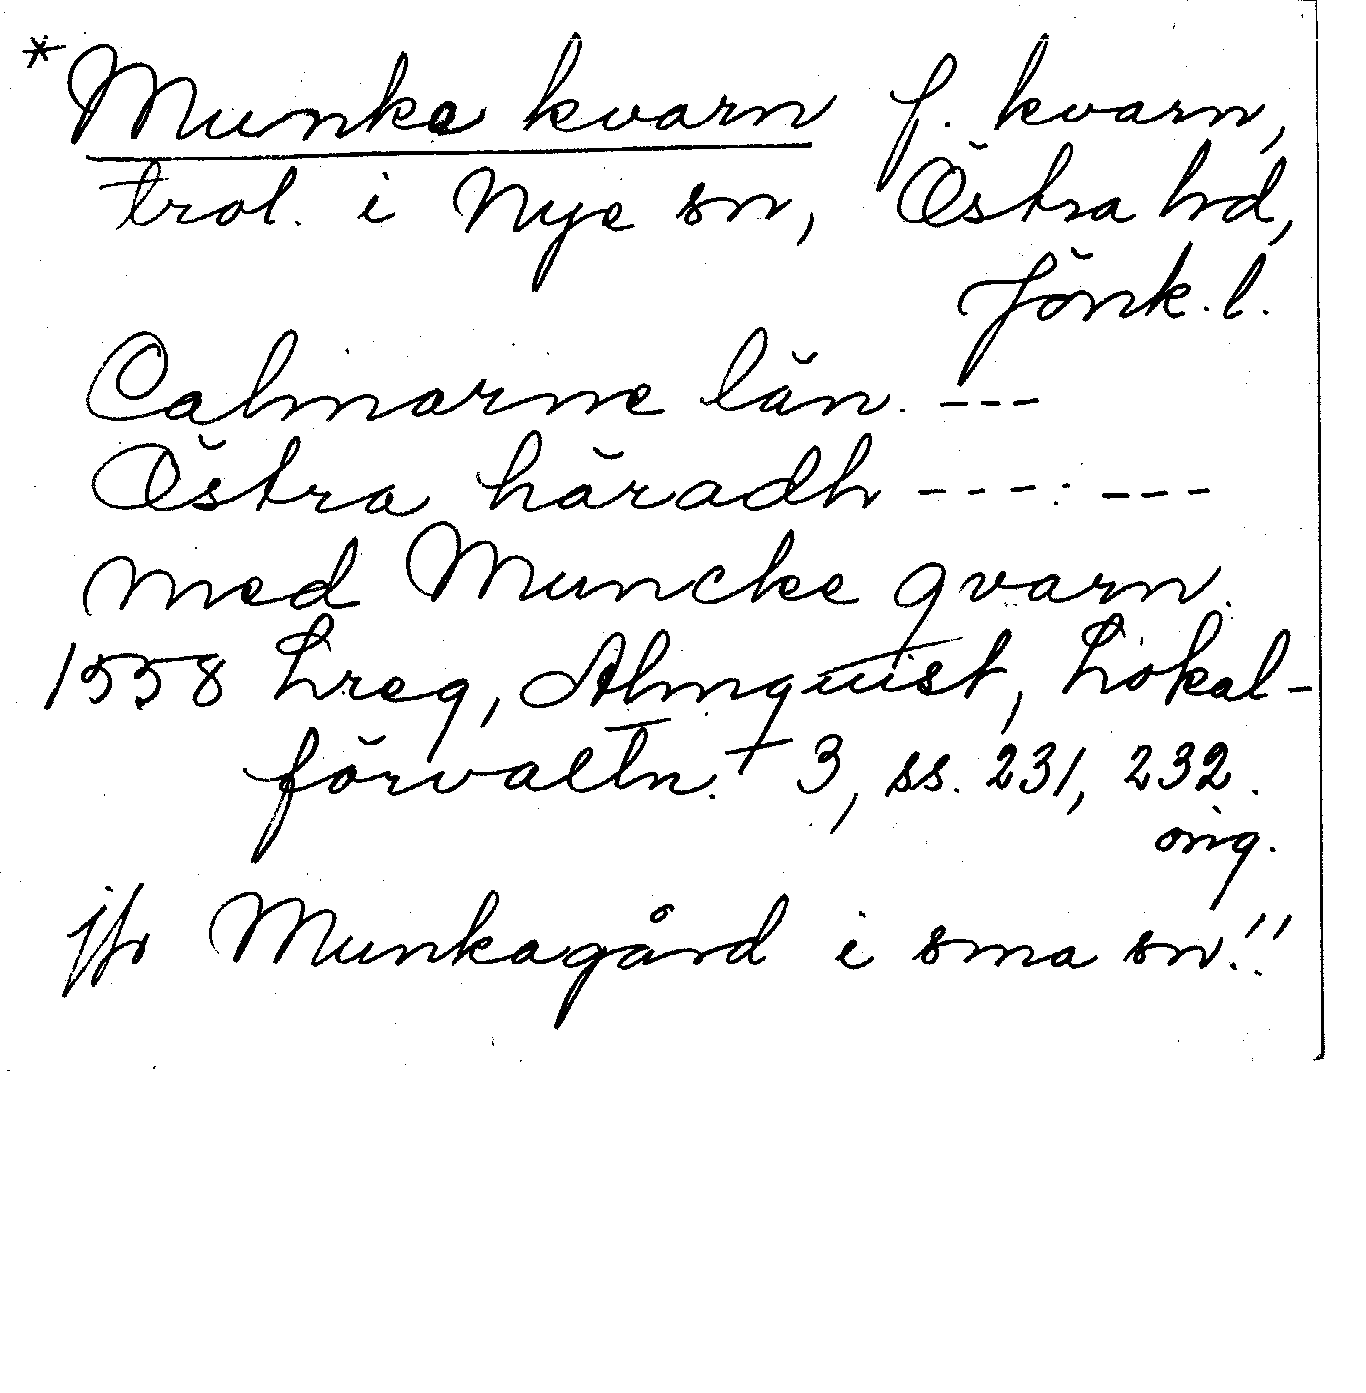 * Munke kvarn f. kvarn,
trol. i Nye sn, Östra hd,
Jönk. l.
Calmarne län. ---
Östra häradh ---:---
med Muncke qvarn.
1558 Lreg, Almquist, Lokal-
förvaltn. + 3, ss. 231, 232.
orig.
jfr Munkagård i sma sn!!